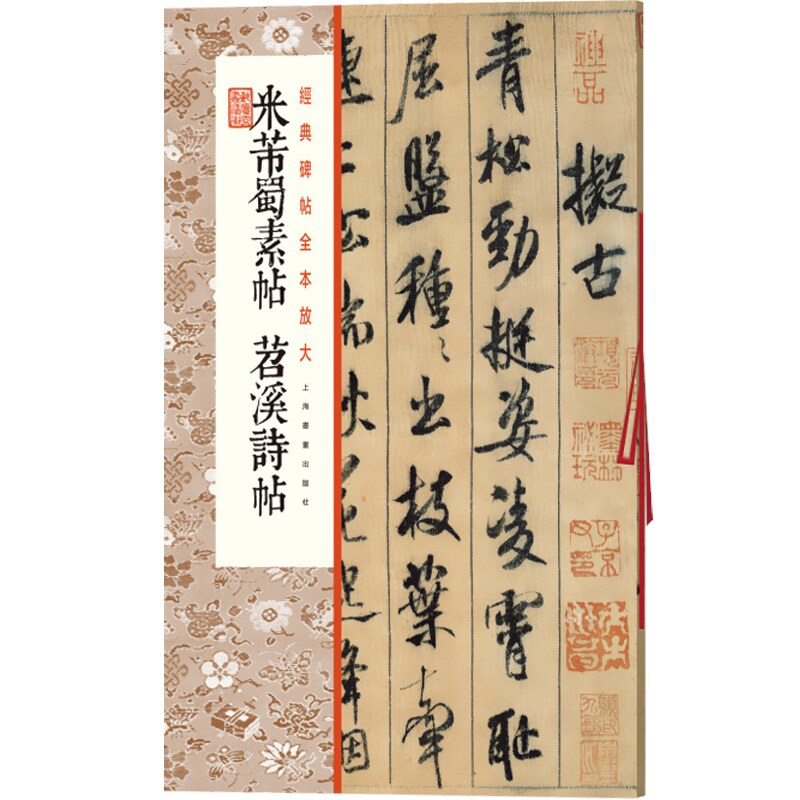 經典碑帖全本放大
米芾蜀素帖 苕溪詩帖
上海書畫出版社
擬古
青松勁挺姿凌霄恥
屈盤種〻出枝葉牽
連上松端秋花起絳烟